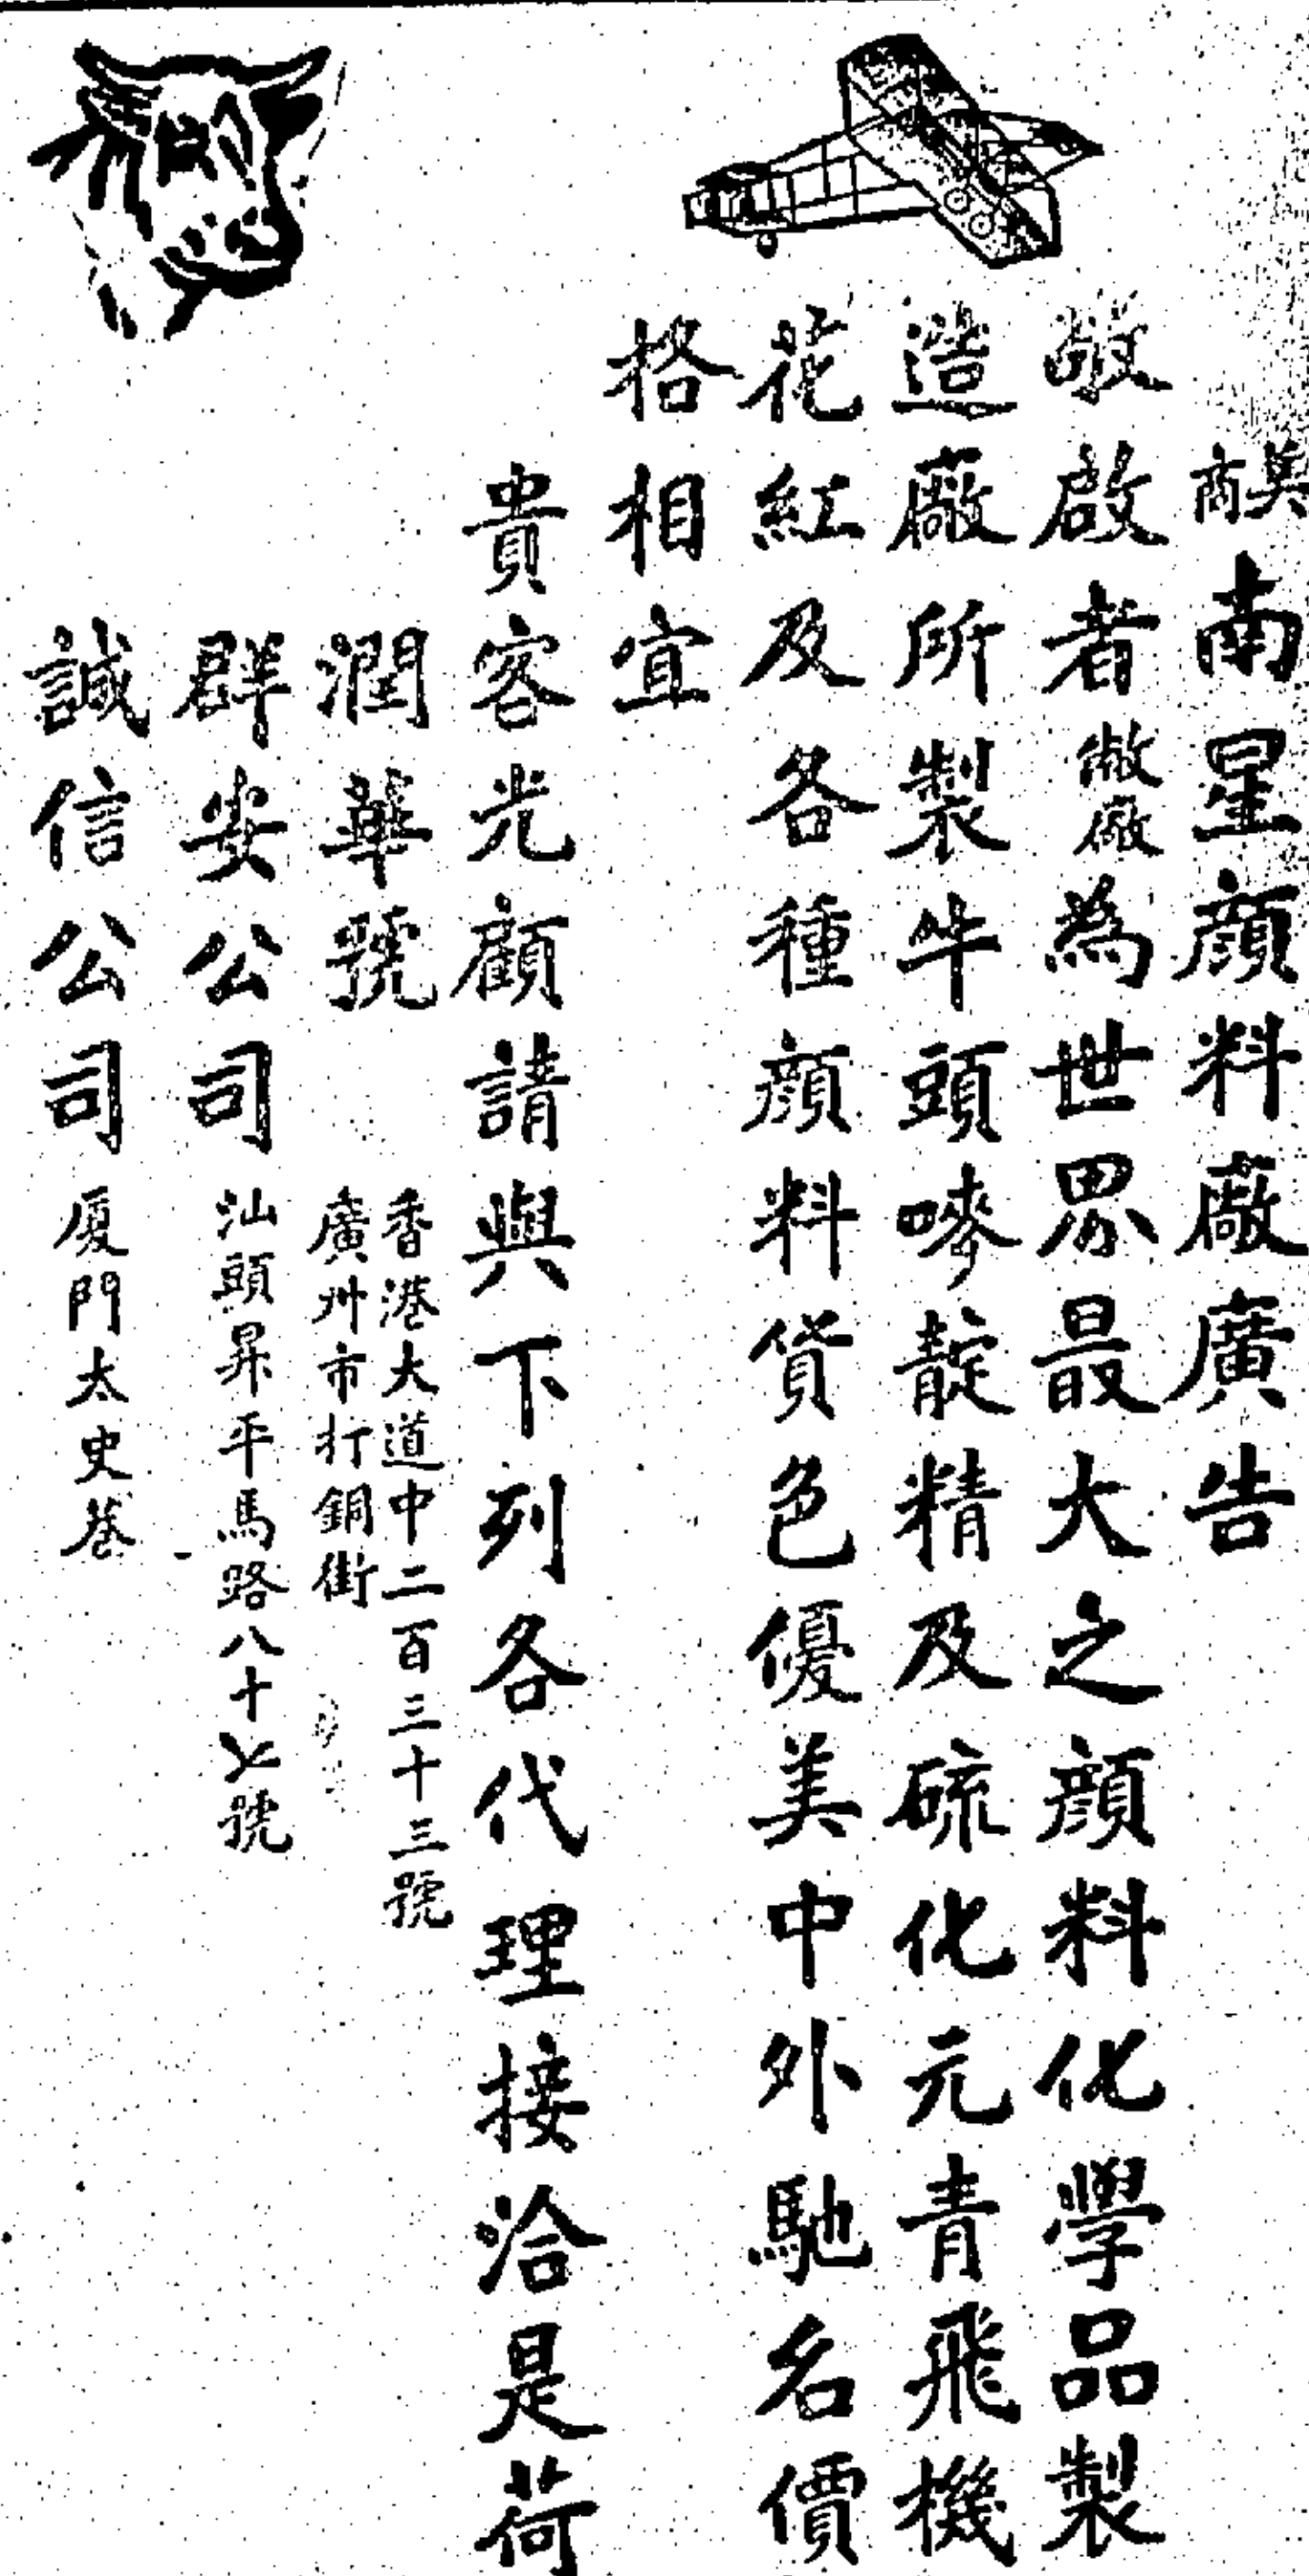 美商南星顏料廠廣告
敬啟者敝廠為世界最大之顏料化學品製
造廠所製牛頭嘜靛精及硫化元青飛機
花紅及各種顏料貨色優美中外馳名價
格相宜
貴客光顧請與下列各代理接洽是荷
潤華號
香港大道中二百三十三號
廣州市打銅街
群安公司 汕頭昇平馬路八十七號
誠信公司 厦門太史巷